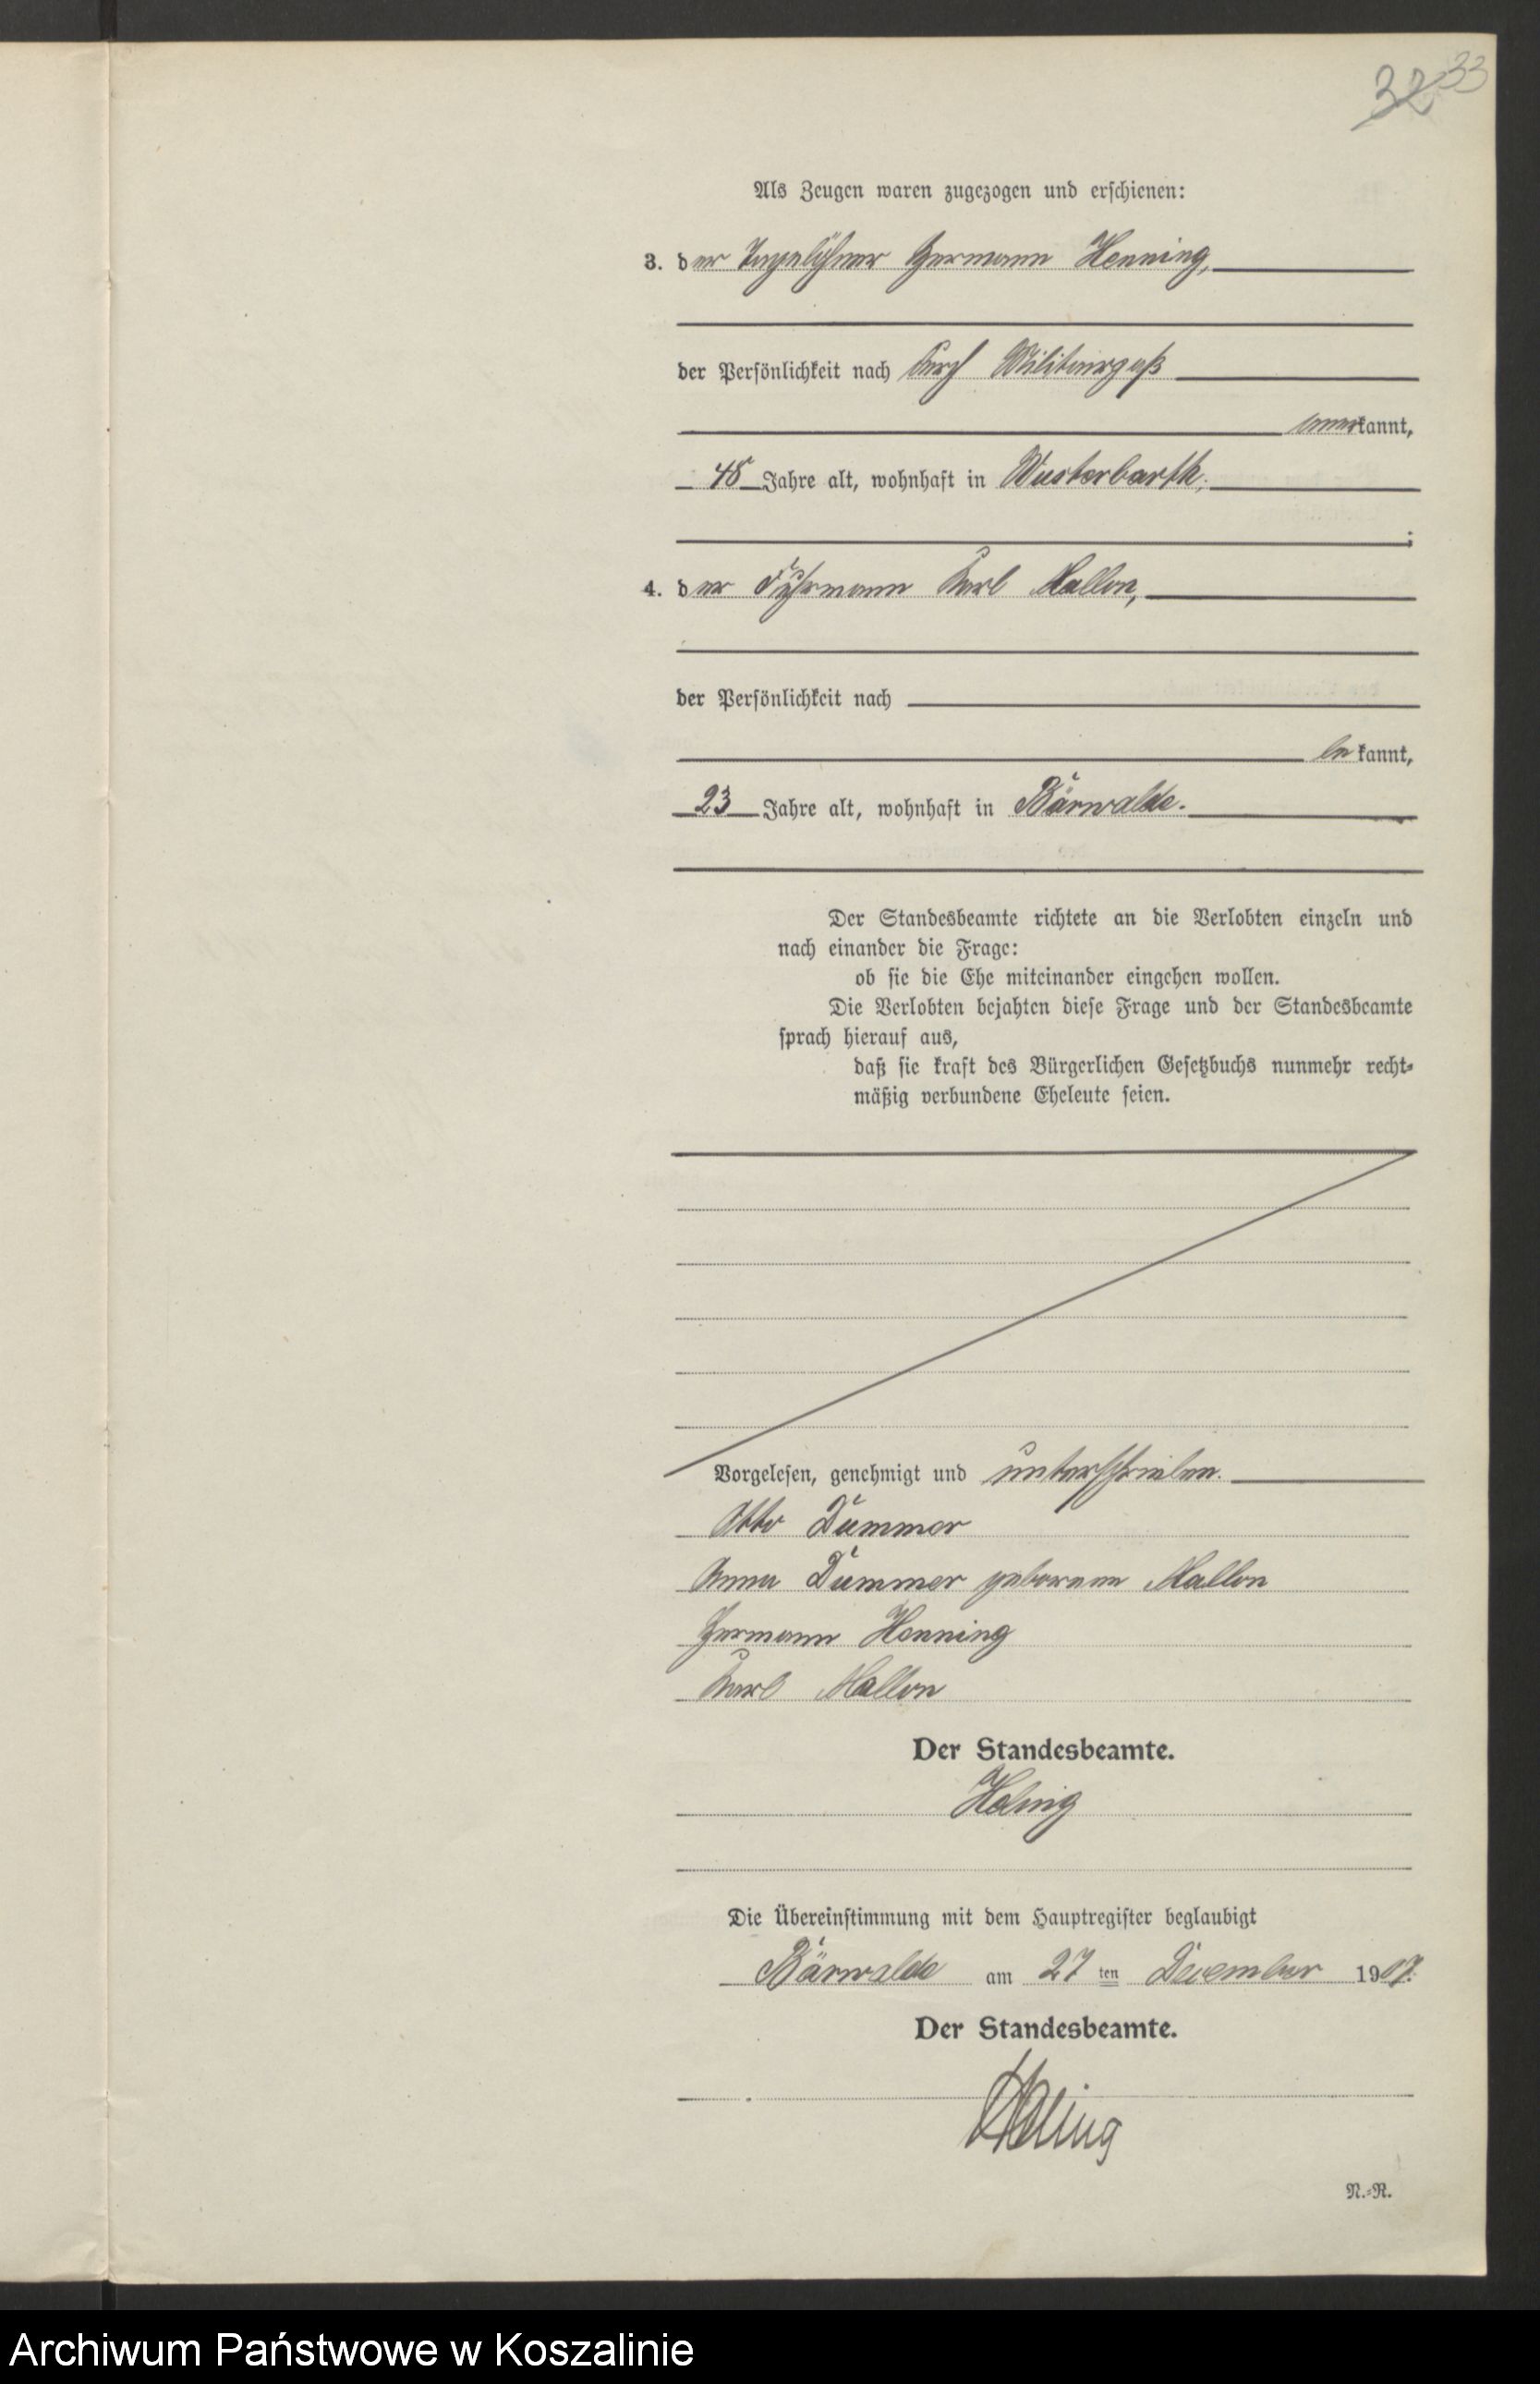 32 33
Als Zeugen waren zugezogen und erschienen:
3. der Tagelöhner Hermann Henning,
der Persönlichkeit nach durch Militairpaß
anerkannt,
48 Jahre alt, wohnhaft in Wusterbarth.
;
4. der Fuhrmann Karl Mallon,
der Persönlichkeit nach
bekannt,
23 Jahre alt, wohnhaft in Bärwalde.
Der Standesbeamte richtete an die Verlobten einzeln und
nach einander die Frage:
ob sie die Ehe miteinander eingehen wollen.
Die Verlobten bejahten diese Frage und der Standesbeamte
sprach hierauf aus,
daß sie kraft des Bürgerlichen Gesetzbuchs nunmehr recht-
mäßig verbundene Eheleute seien.
Vorgelesen, genehmigt und unterschrieben.
Otto Dummer
Anna Dummer geborene Mallon
Hermann Henning
Karl Mallon
Der Standesbeamte.
Die Übereinstimmung mit dem Hauptregister beglaubigt
Bärwalde am 27ten Dezember 1907.
Der Standesbeamte.
N.-R.
Archiwum Państwowe w Koszalinie